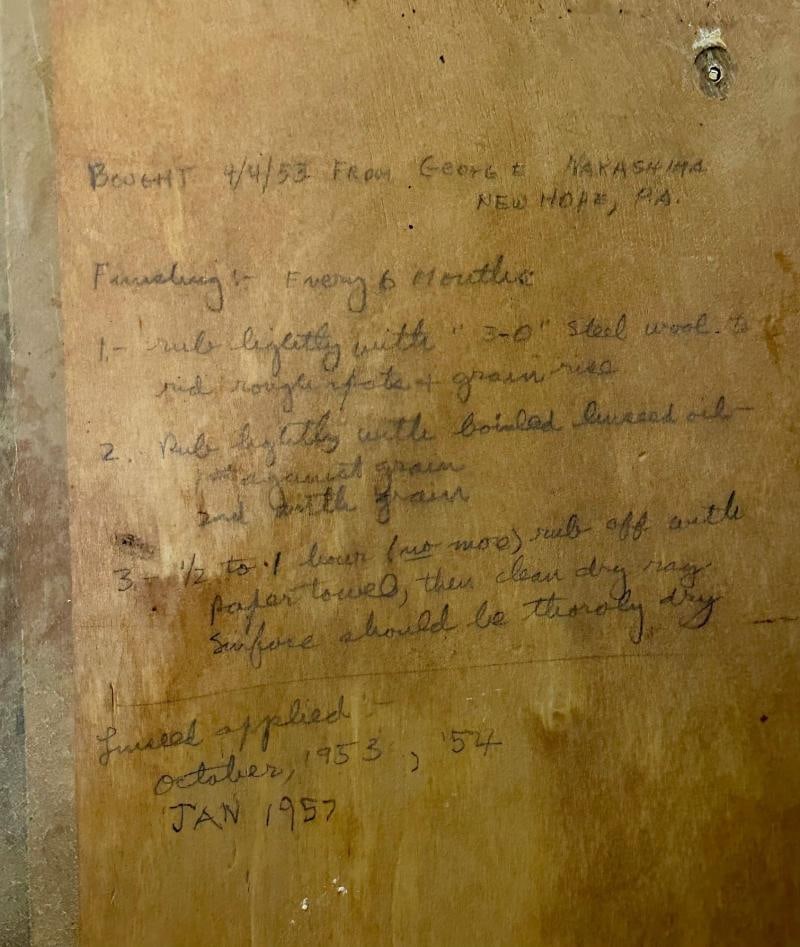 BOUGHT 9/4/53 FROM GEORGE NAKASHIMA
NEW HOPE, PA.
Finishing:- Every 6 Months:
1.- rub lightly with "3-0" steel wool to
rid rough spots + grain rise
2. Rub lightly with boiled linseed oil-
1st against grain
2nd with grain
3.- 1/2 to 1 hour (no more) rub off with
paper towel, then clean dry rag
Surface should be thoroly dry
Linseed applied -
October, 1953, '54
JAN 1957